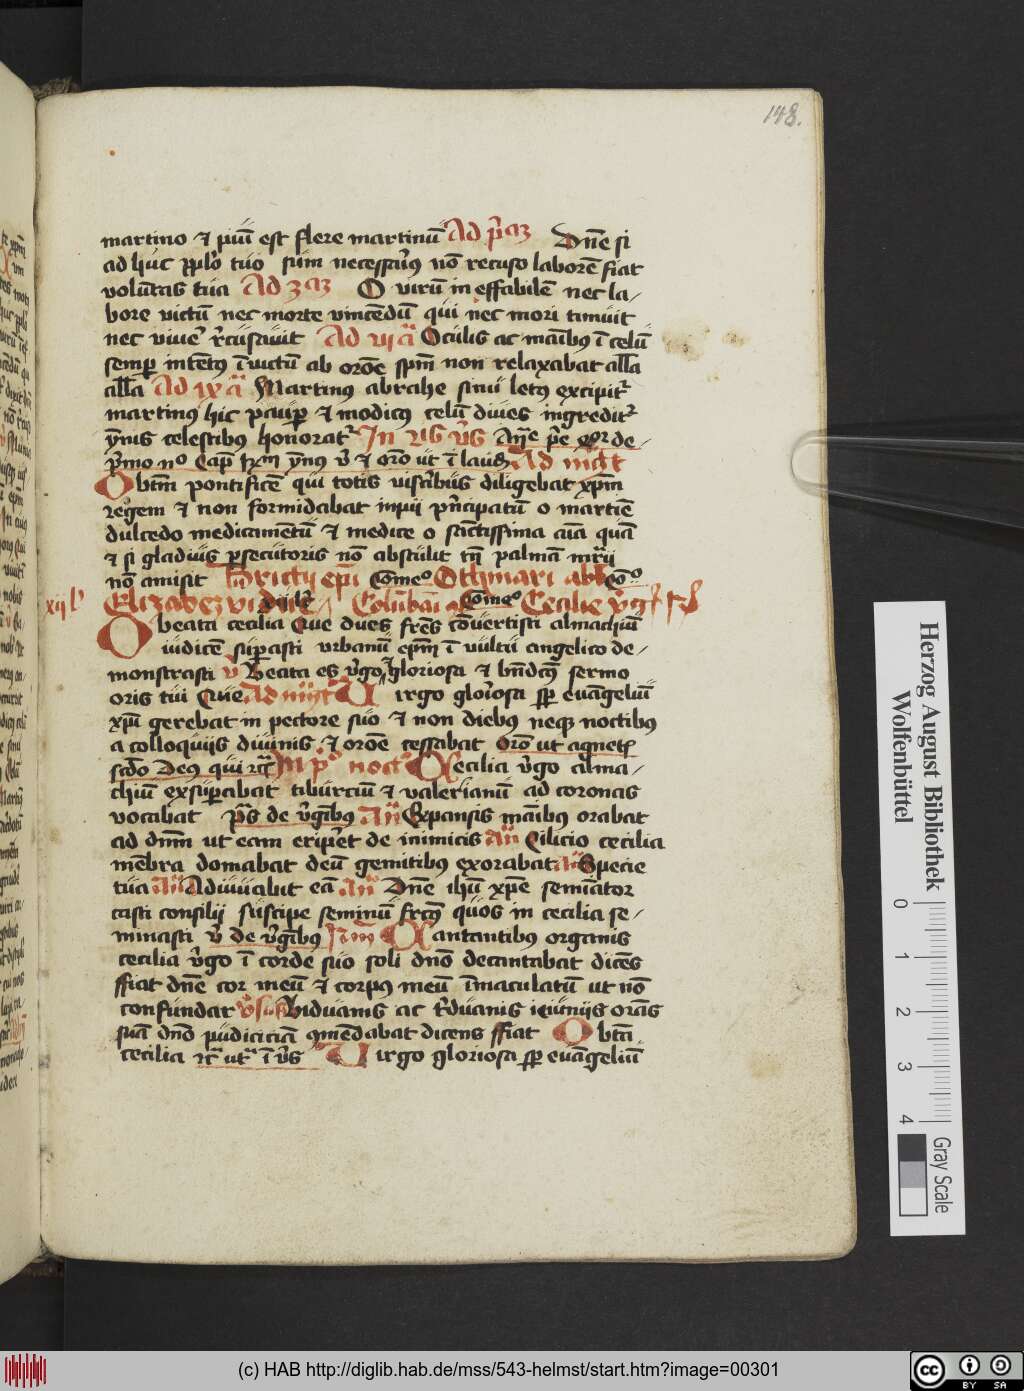 148.
martino ⁊ piū est flere martinū Ad p̄az Dn̄e si
ad huc pplō tuo sum necessari9 nō recuso laborē fiat
volūtas tua Ad 3az O virū in effabilē nec la-
bore victū nec morte vincēdū qui nec mori timuit
nec viue' r̄cusauit Ad via Oculis ac manib9 ī celū
semp intēt9 īuictū ab orōe spm̄ non relaxabat all'a
all'a Ad ixa Martinus abrahe sinu let9 excipit'
martin9 hic paup ⁊ modic9 celū diues ingredit'
ymnis celestib9 honorat' In
Obtm̄ pontificē qui totis viscerib9 diligebat xpm̄
regem ⁊ non formidabat inpii pn̄cipatū o martiē
dulcedo medicamētū ⁊ medice o sāctissima aīa quā
⁊ si gladius psecutoris nō abstulit tn̄ palmā mr̄ii
nō amisit Brictii epī Come° Othmari abb'
xii l' Elizabez vidue Colūbani Come° Cecilie v̄g'
O beata cecilia que dues frēs cōuertisti almachiū
iudicē supasti urbanū epm̄ ī vultu angelico de-
monstrasti v̄ Beata es v̄go gloriosa ⁊ bn̄dc̄9 sermo
oris tui Que Ad Virgo gloriosa sp euāgeliū
xpī gerebat in pectore suo ⁊ non dieb9 neq noctibus
a colloquiis diuinis ⁊ orōe cessabat Orō ut agnetꝭ
scd̄o Deus qui In p° noct' Cecilia v̄go alma-
chiū exsupabat tiburciū ⁊ valerianū ad coronas
vocabat ps de v̄gīb9 an̄ Expansis manib9 orabat
ad dnm̄ ut eam eripet de inimicis an̄ Cilicio cecilia
mēbra domabat deū gemitibus exorabat an̄ Specie
tua an̄ Adiuuabit eā an̄ Dn̄e ihū xpe seminator
casti consilii suscipe seminū fruct9 quos in cecilia se-
minasti v̄ de v̄gīb9 Cantantibus organis
cecilia v̄go ī corde suo soli dnō decantabat dicēs
ffiat dn̄e cor meū ⁊ corpus meū īmaculatū ut nō
confundar Biduanis ac triduanis ieiuniis orās
suā dnō pudiciciā qmēdabat dicens ffiat O btā
cecilia ut ī Virgo gloriosa sp euāgeliū
Herzog August Bibliothek
Wolfenbüttel
0 1 2 3 4
Gray Scale
(c) HAB http://diglib.hab.de/mss/543-helmst/start.htm?image=00301
cc BY SA